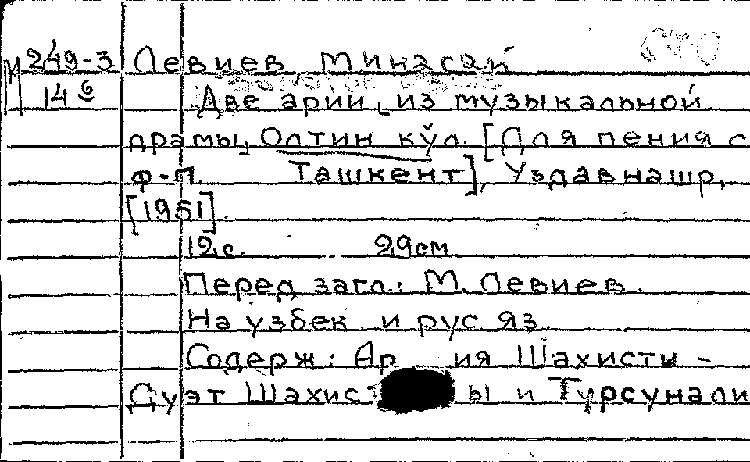 М 249-3 Левиев Минасай
14 6
Две арии из музыкальной
драмы, Олтин кўл. [Для пения с
ф-п. Ташкент], Уздавнашр,
[1951].
12 с. 29 см
Перед загл.: М. Левиев.
На узбек и рус яз
Содерж: Ар ия Шахисты -
Дуэт Шахист ы и Турсунали